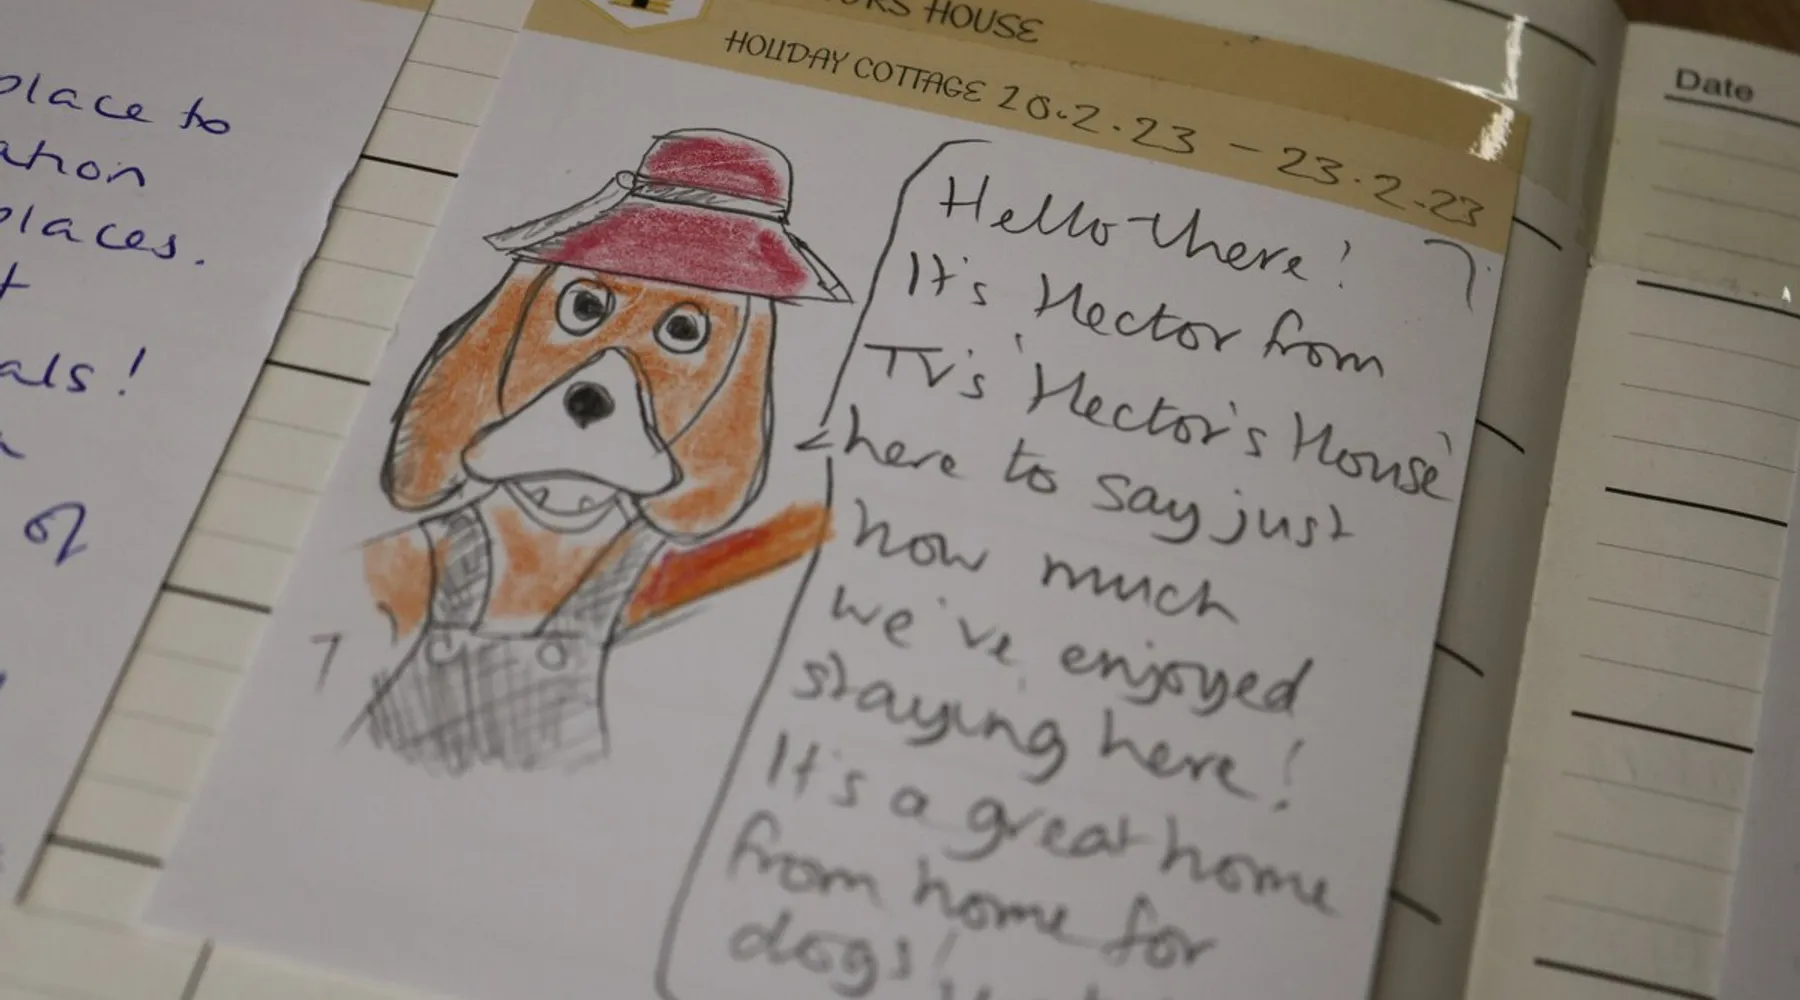 place to
places.
als!
of
HOUSE
HOLIDAY COTTAGE 20.2.23 – 23.2.23
Hello there!
It's Hector from
TV's 'Hector's House'
here to say just
how much
we've enjoyed
staying here!
It's a great home
from home for
dogs!
Date